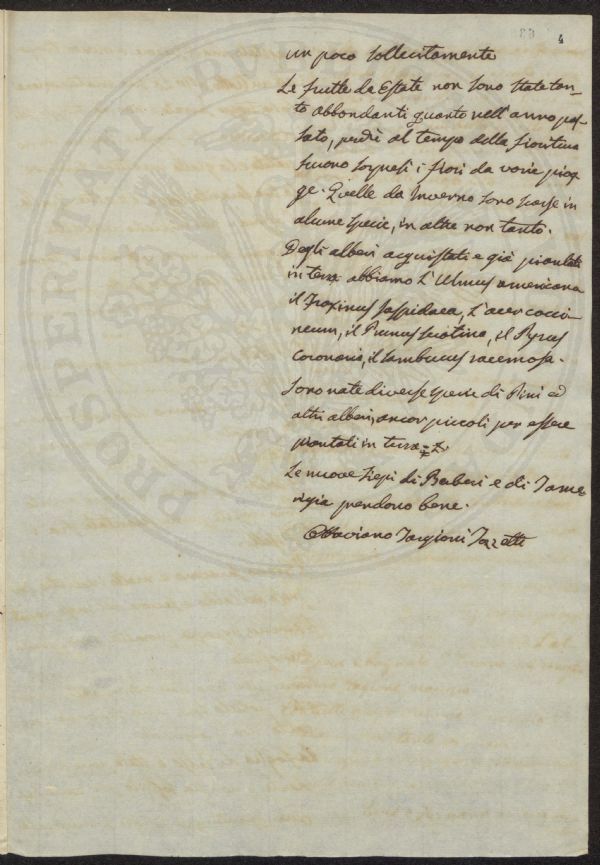 83 4
un poco sollecitamente
Le frutte da Estate non sono state tan-
to abbondanti quanto nell'anno pas-
sato, perchè al tempo della fioritura
furono sorpresi i fiori da varie piog-
ge. Quelle da Inverno sono scarse in
alcune specie, in altre non tanto.
Degli alberi acquistati e già piantati
in terra abbiamo L'Ulmus americana
il Fraxinus L'acer cocci-
neum, il Prunus serotina, il Pyrus
Coronaria, il Sambucus racemosa.
Sono nate diverse specie di Pini ed
altri alberi, ancor piccoli per essere
piantati in terra
Le nuove siepi di Berberi e di Tame-
rigia prendono bene.
Ottaviano Targioni Tozzetti
PROSPERITATI